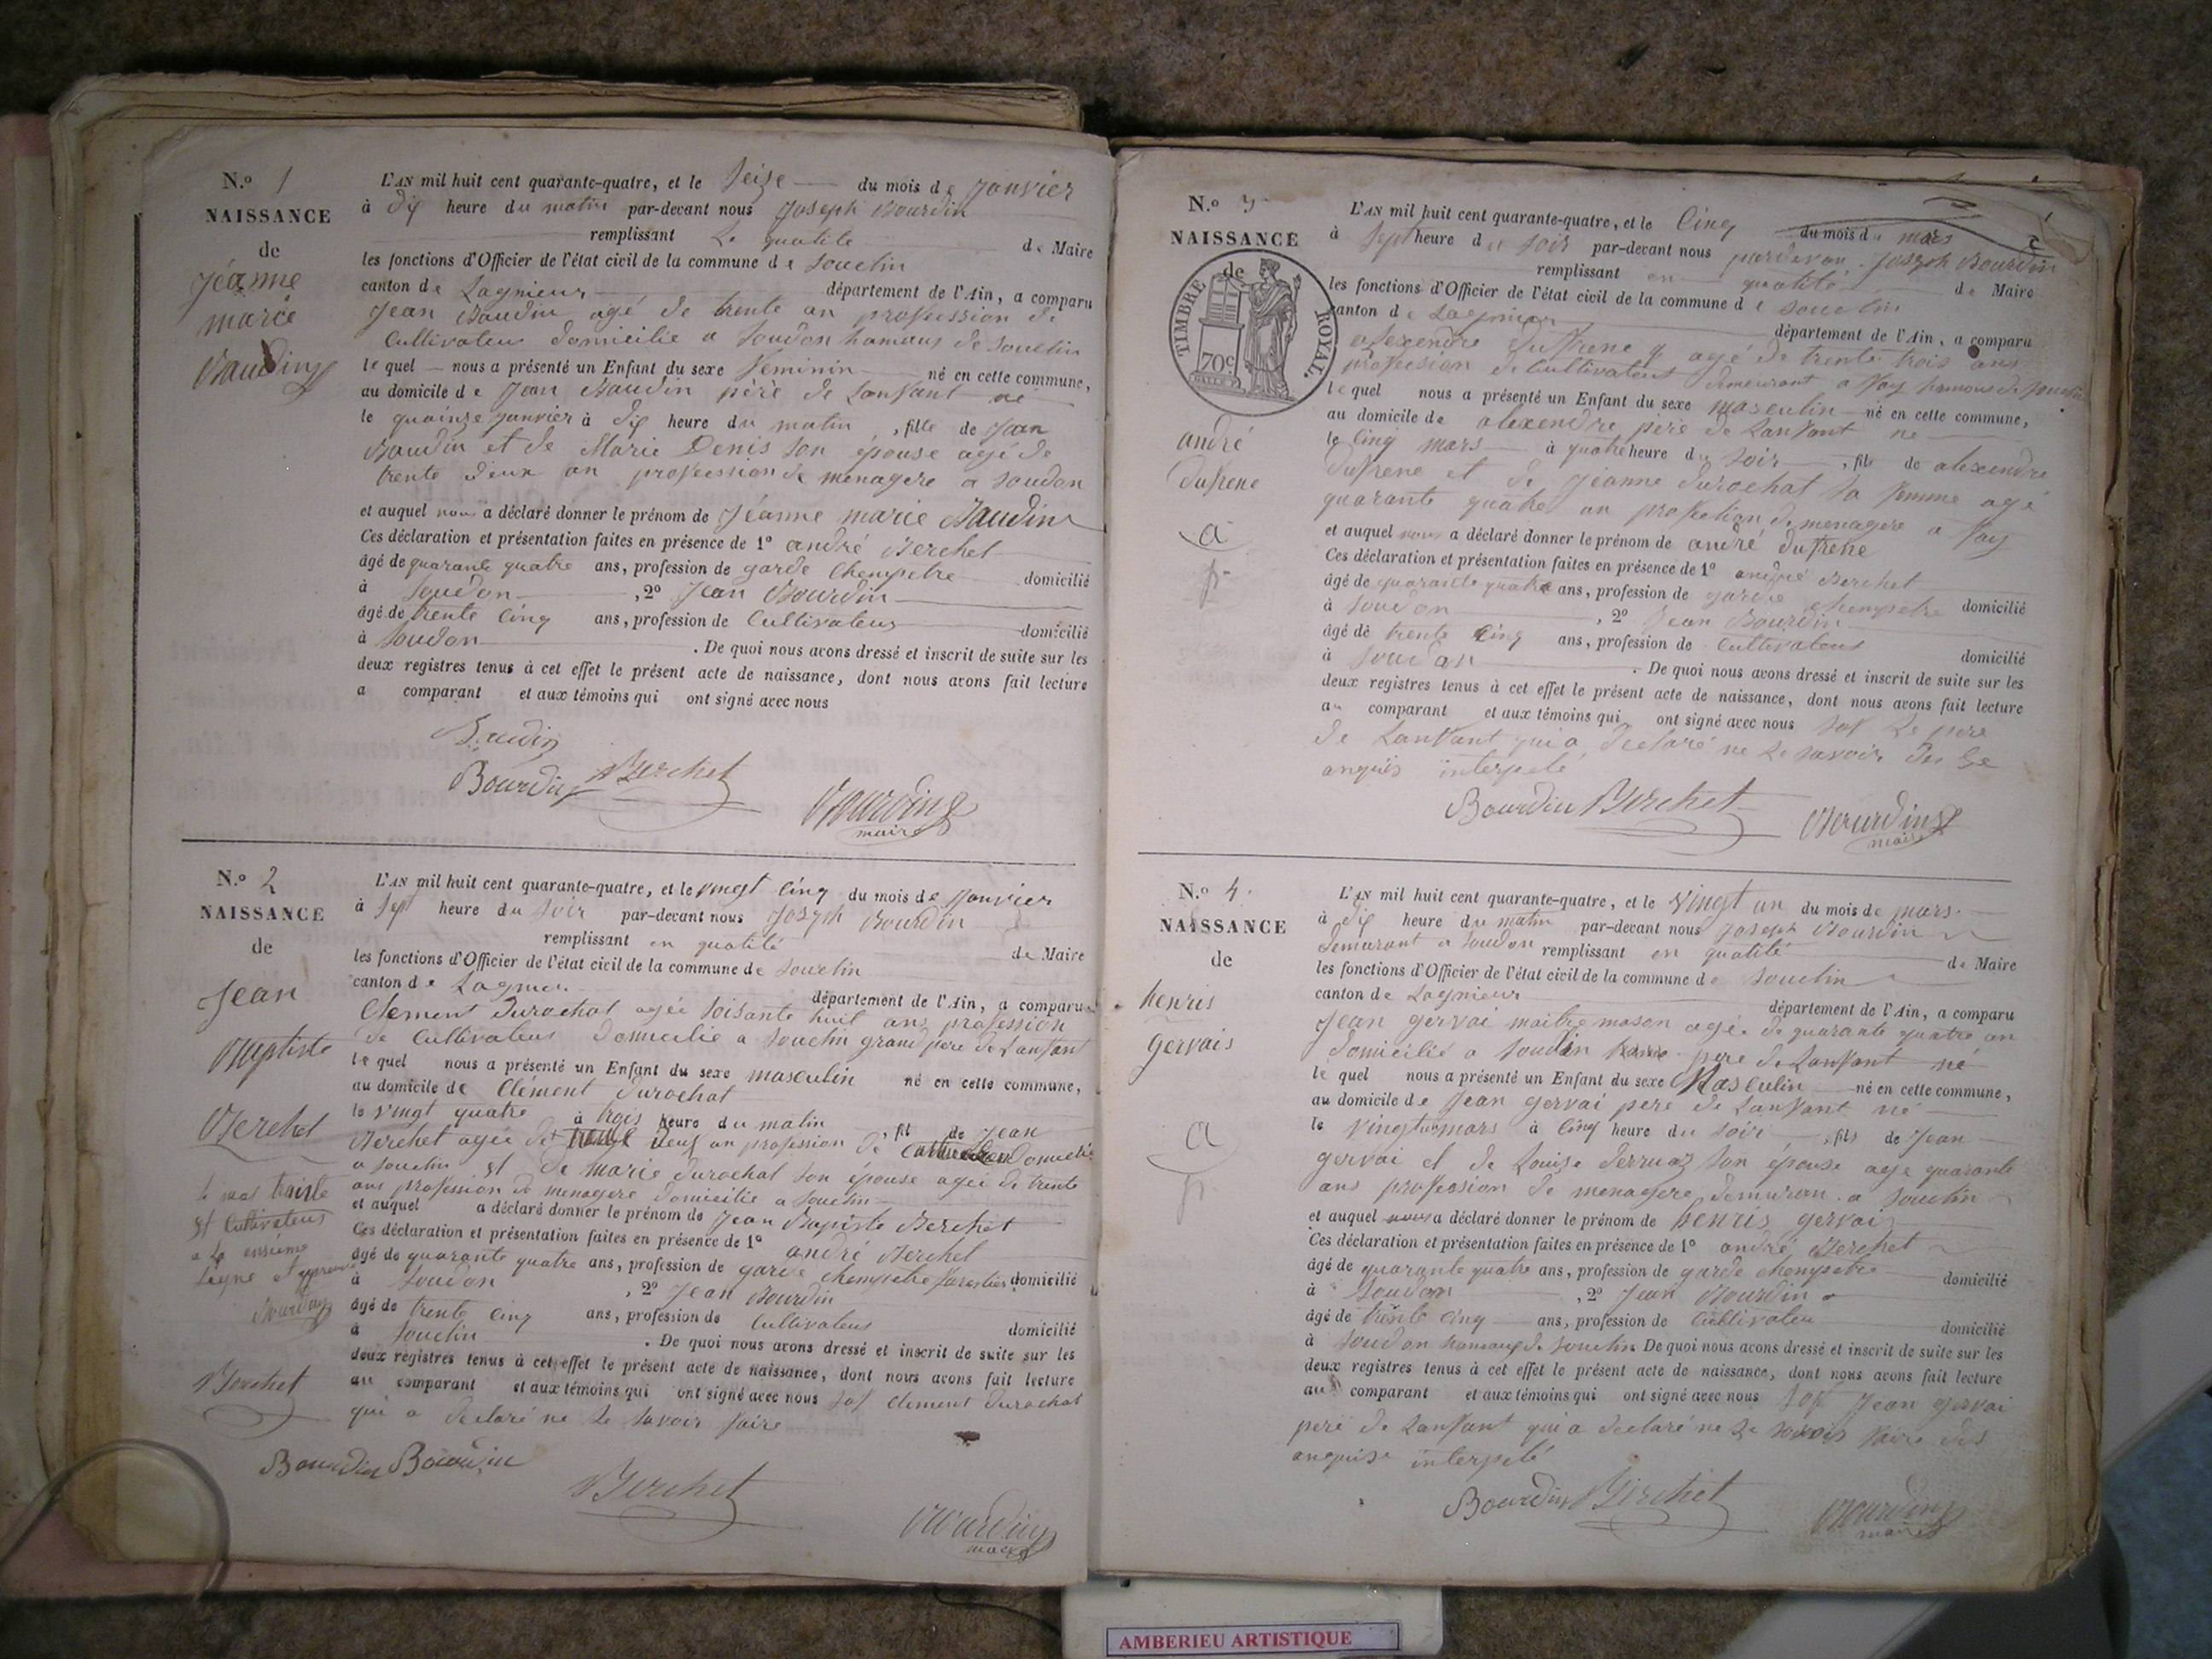 N.º 1
NAISSANCE
de
Jéanne
marie
Baudin
L'AN mil huit cent quarante-quatre, et le seize du mois de janvier
à dix heure du matin par-devant nous Joseph Bourdin
remplissant la qualité de Maire
les fonctions d'Officier de l'état civil de la commune de Souclin
canton de Lagnieur département de l'Ain, a comparu
Jean Baudin agé de trente an profession de
Cultivateur domicilie a Soudon hamaus de Souclin
lequel nous a présenté un Enfant du sexe feminin né en cette commune,
au domicile de Jean Baudin père de Lanfant né
le quainze janvier à dix heure du matin, fille de Jean
Baudin et de Marie Denis son épouse agé de
trente deux an profession de menagere a Soudon
et auquel nous a déclaré donner le prénom de Jéanne marie Baudin
Ces déclaration et présentation faites en présence de 1º andré Berchet
âgé de quarante quatre ans, profession de garde Chempetre domicilié
à Soudon, 2º Jean Bourdin
âgé de trente cinq ans, profession de Cultivateur domicilié
à Soudon. De quoi nous avons dressé et inscrit de suite sur les
deux registres tenus à cet effet le présent acte de naissance, dont nous avons fait lecture
a comparant et aux témoins qui ont signé avec nous
Baudin
Bourdin Berchet
Bourdin
maire
N.º 2
NAISSANCE
de
Jean
Baptiste
Berchet
L'AN mil huit cent quarante-quatre, et le vingt cinq du mois de janvier
à sept heure du soir par-devant nous Joseph Bourdin
remplissant en qualité de Maire
les fonctions d'Officier de l'état civil de la commune de Souclin
canton de Lagnieu département de l'Ain, a comparu
Clement Durochat agée soisante huit ans profession
de Cultivateur domicilie a Souclin grand pere de Lanfant
lequel nous a présenté un Enfant du sexe masculin né en cette commune,
au domicile de Clément Durochat
le vingt quatre à trois heure du matin, fil de Jean
Berchet agée de neuf an profession de
a Souclin et de marie Durochat son épouse agée de trente
ans profession de menagere domicilie a Souclin
et auquel a déclaré donner le prénom de Jean Baptiste Berchet
Ces déclaration et présentation faites en présence de 1º andré Berchet
âgé de quarante quatre ans, profession de garde chempetre forestier domicilié
à Soudon, 2º Jean Bourdin
âgé de trente cinq ans, profession de Cultivateur domicilié
à Souclin. De quoi nous avons dressé et inscrit de suite sur les
deux registres tenus à cet effet le présent acte de naissance, dont nous avons fait lecture
au comparant et aux témoins qui ont signé avec nous sof Clement Durochat
qui a declaré ne le savoir faire
le mot trente
et Cultivateur
a la
Ligne et
Bourdin
Berchet
Bourdin Bourdin
Berchet
Bourdin
maire
N.º 3
NAISSANCE
de
TIMBRE ROYAL
70c
andré
dufrene
a
p
L'AN mil huit cent quarante-quatre, et le cinq du mois de mars
à sept heure de soir par-devant nous pardevan Joseph Bourdin
remplissant en qualité de Maire
les fonctions d'Officier de l'état civil de la commune de Souclin
canton de Lagnieu département de l'Ain, a comparu
alexendre dufrene agé de trente trois ans
profession de Cultivateur demeurant a fay hamous de Souclin
lequel nous a présenté un Enfant du sexe masculin né en cette commune,
au domicile de alexendre pere de Lanfant né
le cinq mars à quatre heure du soir, fils de alexendre
dufrene et de jéanne durochat sa femme agé
quarante quatre an profection de menagere a fay
et auquel nous a déclaré donner le prénom de andré dufrene
Ces déclaration et présentation faites en présence de 1º andré Berchet
âgé de quarante quatre ans, profession de garde chempetre domicilié
à Soudon, 2º Jean Bourdin
âgé de trente cinq ans, profession de Cultivateur domicilié
à Soudon. De quoi nous avons dressé et inscrit de suite sur les
deux registres tenus à cet effet le présent acte de naissance, dont nous avons fait lecture
au comparant et aux témoins qui ont signé avec nous sof le pere
de Lanfant qui a declaré ne le savoir
anquis interpelé
Bourdin Berchet
Bourdin
maire
N.º 4
NAISSANCE
de
henris
gervais
a
p
L'AN mil huit cent quarante-quatre, et le vingt un du mois de mars
à dix heure du matin par-devant nous Joseph Bourdin
demurant a Soudon remplissant en qualité de Maire
les fonctions d'Officier de l'état civil de la commune de Souclin
canton de Lagnieur département de l'Ain, a comparu
Jean gervai maitre mason agé de quarante quatre an
domicilié a Souclin pere de Lanfant né
lequel nous a présenté un Enfant du sexe Masculin né en cette commune,
au domicile de Jean gervai pere de Lanfant né
le vingt un mars à cinq heure du soir, fils de Jean
gervai et de Louise Derruaz son épouse age quarante
ans profession de menagere demuran a Souclin
et auquel nous a déclaré donner le prénom de henris gervais
Ces déclaration et présentation faites en présence de 1º andré Berchet
âgé de quarante quatre ans, profession de garde chempetre domicilié
à Soudon, 2º Jean Bourdin
âgé de trente cinq ans, profession de Cultivateu domicilié
à Soudon hamaux de Souclin De quoi nous avons dressé et inscrit de suite sur les
deux registres tenus à cet effet le présent acte de naissance, dont nous avons fait lecture
au comparant et aux témoins qui ont signé avec nous sof Jean gervai
pere de Lanfant qui a declaré ne le savoir faire
anquise interpelé
Bourdin Berchet
Bourdin
maire
AMBERIEU ARTISTIQUE